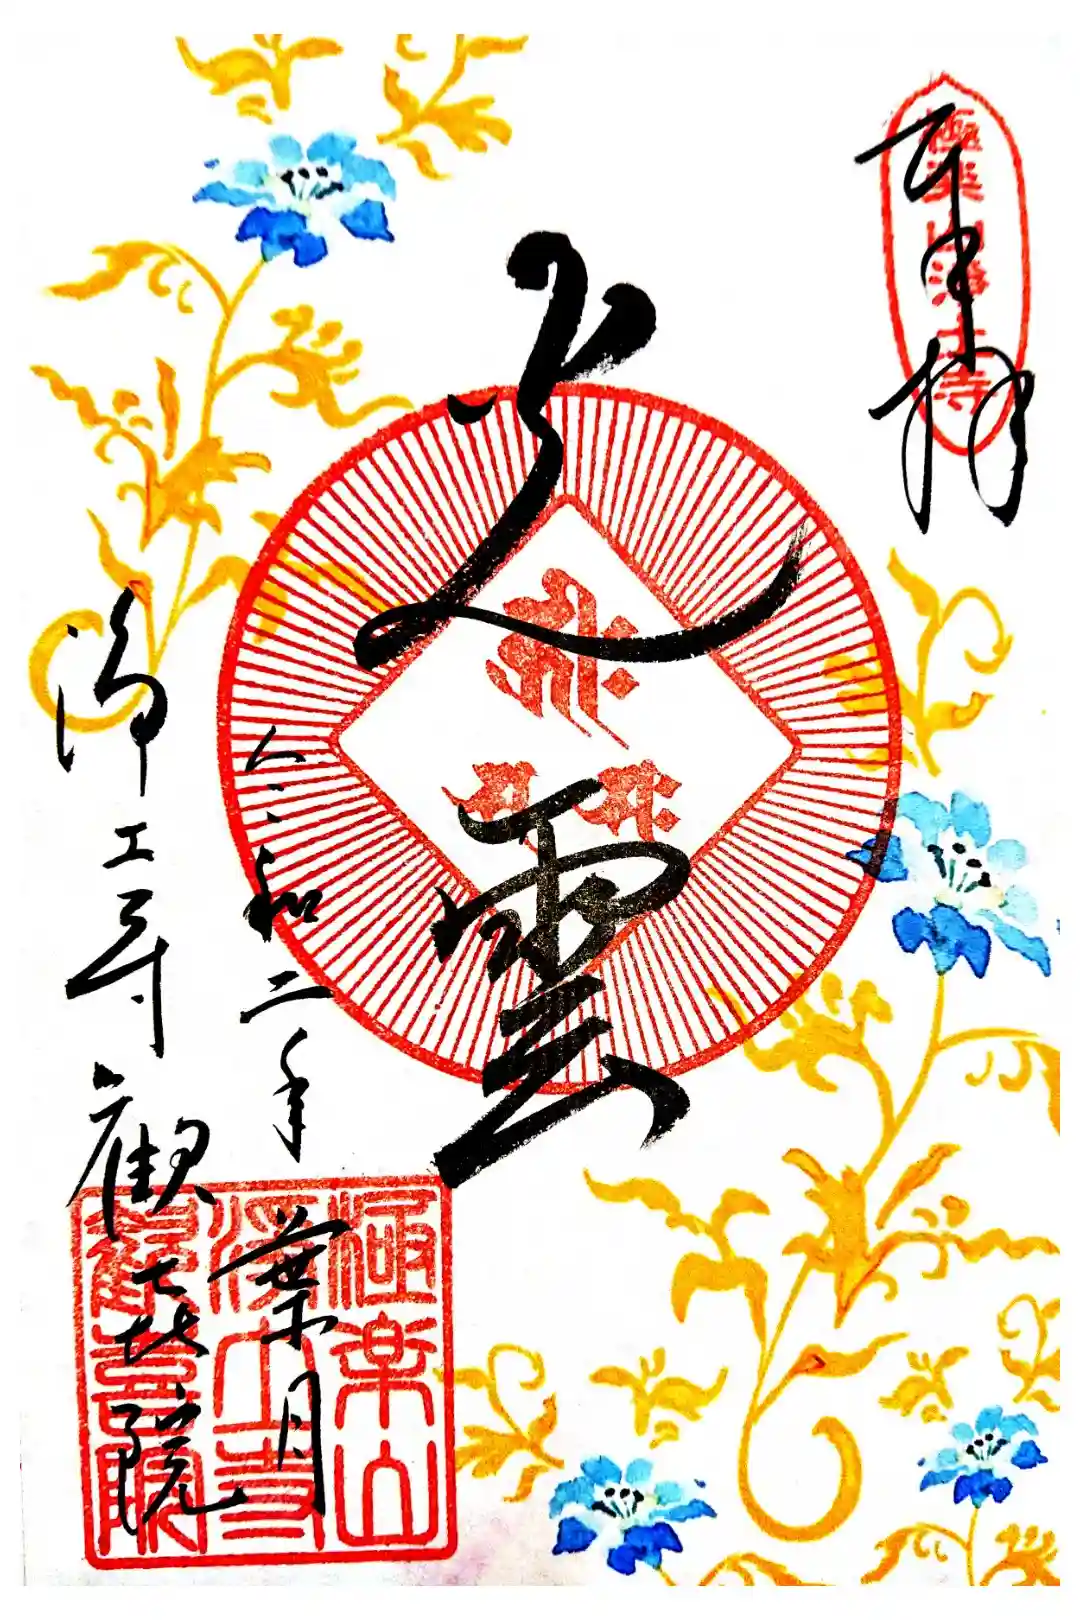 奉拝
極楽山浄土寺
火雲
令和二年葉月
浄土寺歓喜院
極楽山
浄土寺
歡喜院